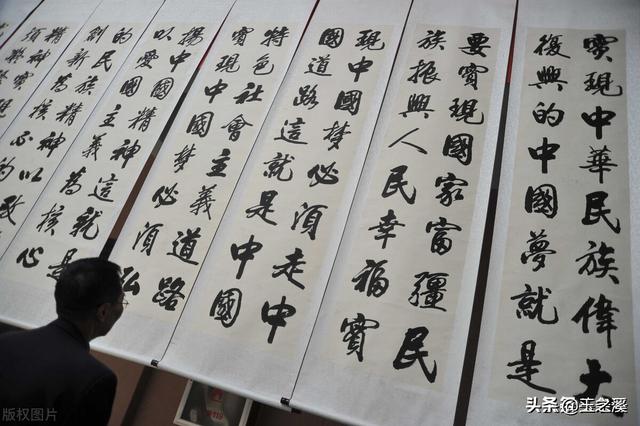 實現中華民族偉大
復興的中國夢就是
要實現國家富疆民
族振興人民幸福實
現中國夢必須走中
國道路這就是中國
特色社會主義道路
實現中國夢必須弘
揚中國精神這就是
以愛國主義為核心
的民族精神以改
版权图片
头条@玉之溪